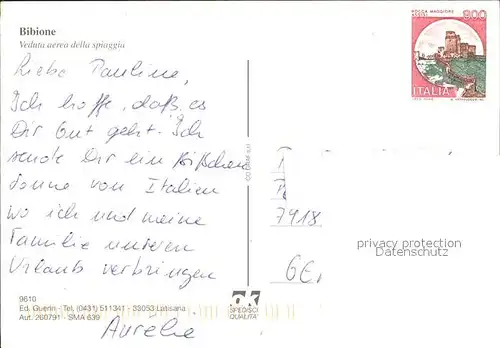 Bibione
Veduta aerea della spiaggia
ROCCA MAGGIORE
800
ITALIA
Liebe Pauline,
Ich hoffe, daß es
Dir Gut geht. Ich
sende Dir ein bißchen
Sonne von Italien
wo ich und meine
Familie unseren
Urlaub verbringen
Aurelie
7918
GE
privacy protection
Datenschutz
9610
Ed. Guerin - Tel. (0431) 511341 - 33053 Latisana
Aut. 260791 - SMA 639
ok
SPEDISCI
QUALITA'